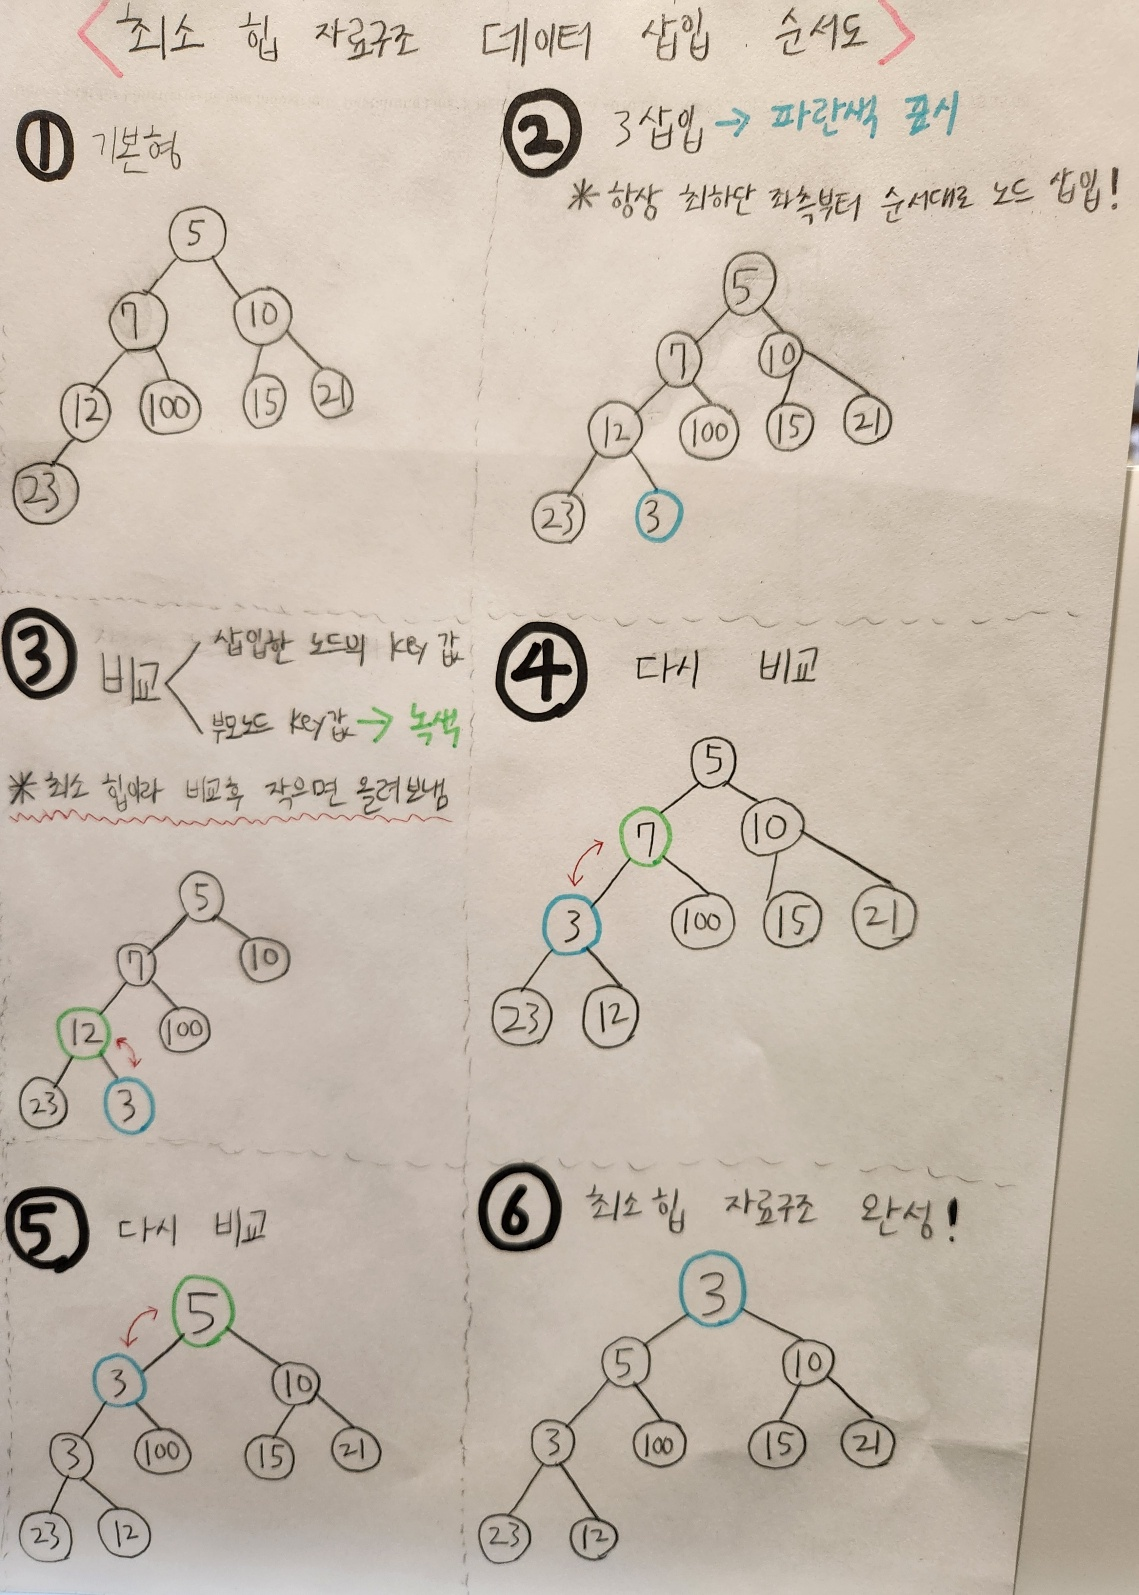 <최소 힙 자료구조 데이터 삽입 순서도>
① 기본형
5
7 10
12 100 15 21
23
② 3삽입 → 파란색 표시
* 항상 최하단 좌측부터 순서대로 노드 삽입!
5
7 10
12 100 15 21
23 3
③ 비교
삽입한 노드의 key 값
부모노드 key값 → 녹색
* 최소 힙이라 비교후 작으면 올려보냄
5
7 10
12 100
23 3
④ 다시 비교
5
7 10
3 100 15 21
23 12
⑤ 다시 비교
5
3 10
3 100 15 21
23 12
⑥ 최소힙 자료구조 완성!
3
5 10
3 100 15 21
23 12